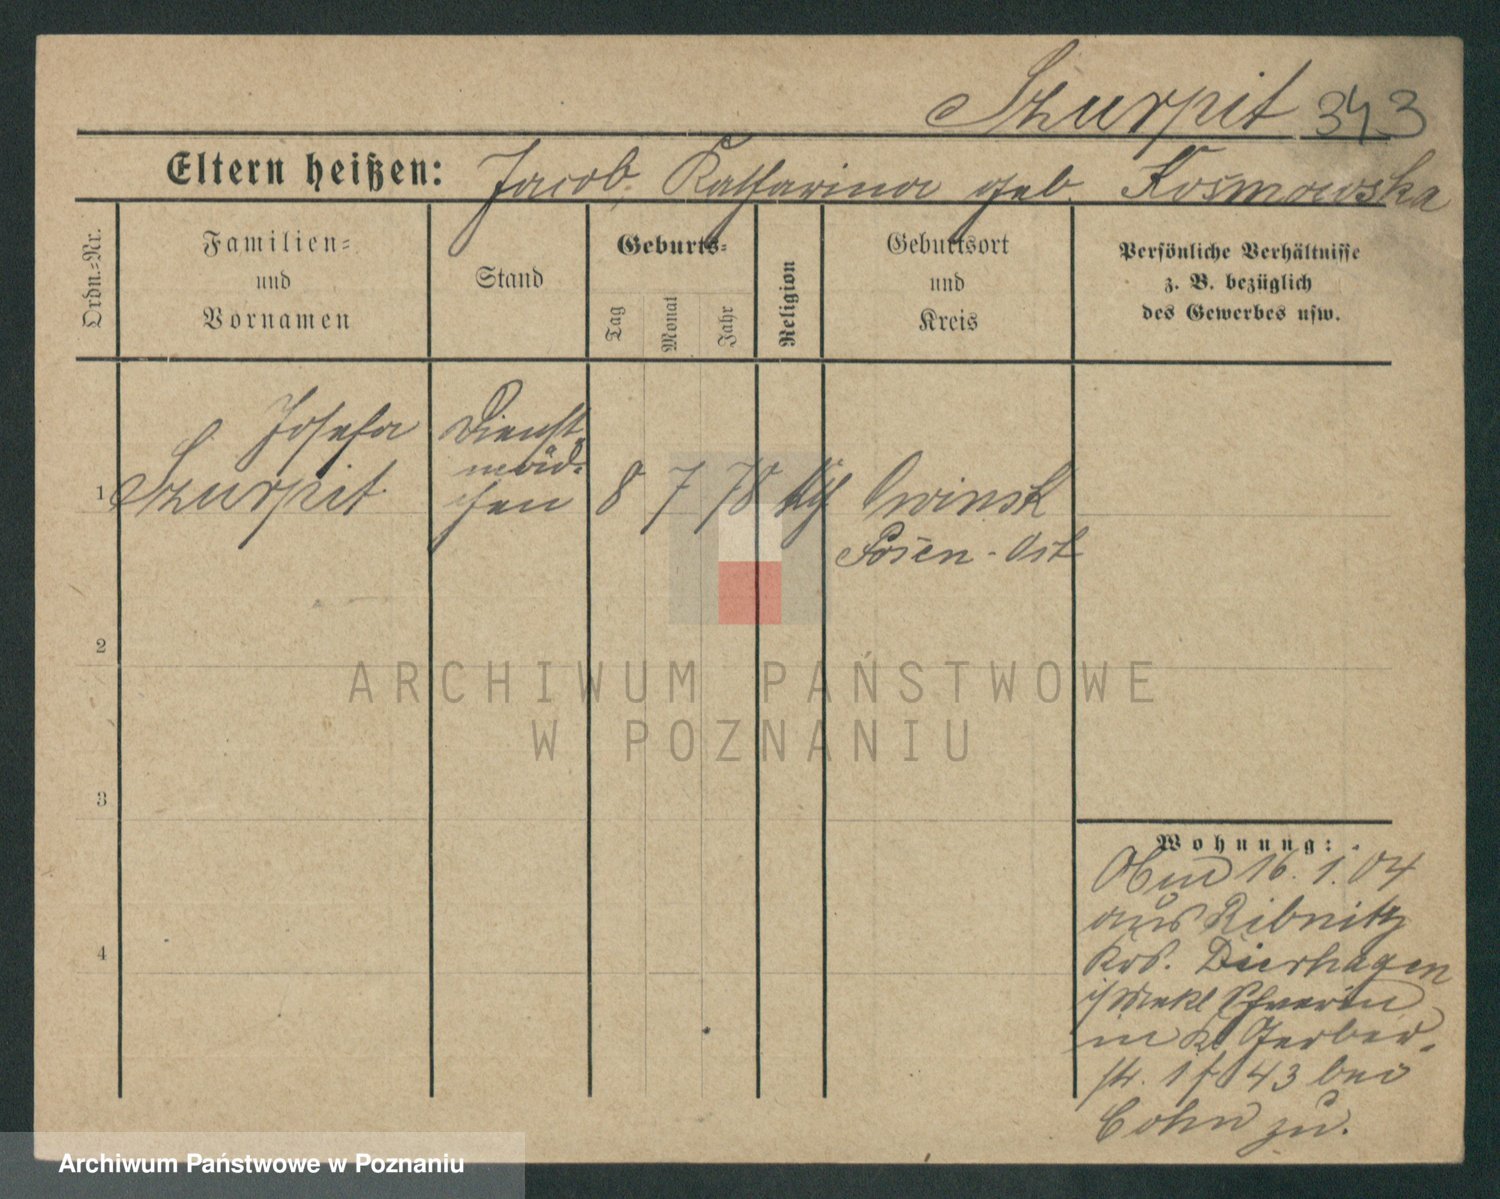 Szurpit 343
Eltern heißen: Jacob, Katharina geb. Kosmowska
Ordn.-Nr.
Familien-
und
Vornamen
Stand
Geburts-
Tag
Monat
Jahr
Religion
Geburtsort
und
Kreis
Persönliche Verhältnisse
z. B. bezüglich
des Gewerbes usw.
1
Josefa
Szurpit
Dienst-
mäd-
chen
8 7 78 kth
Owinsk
Posen-Ost
2
3
4
Wohnung:
16.1.04
aus Ribnitz
Krs. Dierhagen
i/Mekl Schwerin
in Kl Gerber-
str. 1 f 43 bei
Cohn zu.
ARCHIWUM PAŃSTWOWE
W POZNANIU
Archiwum Państwowe w Poznaniu